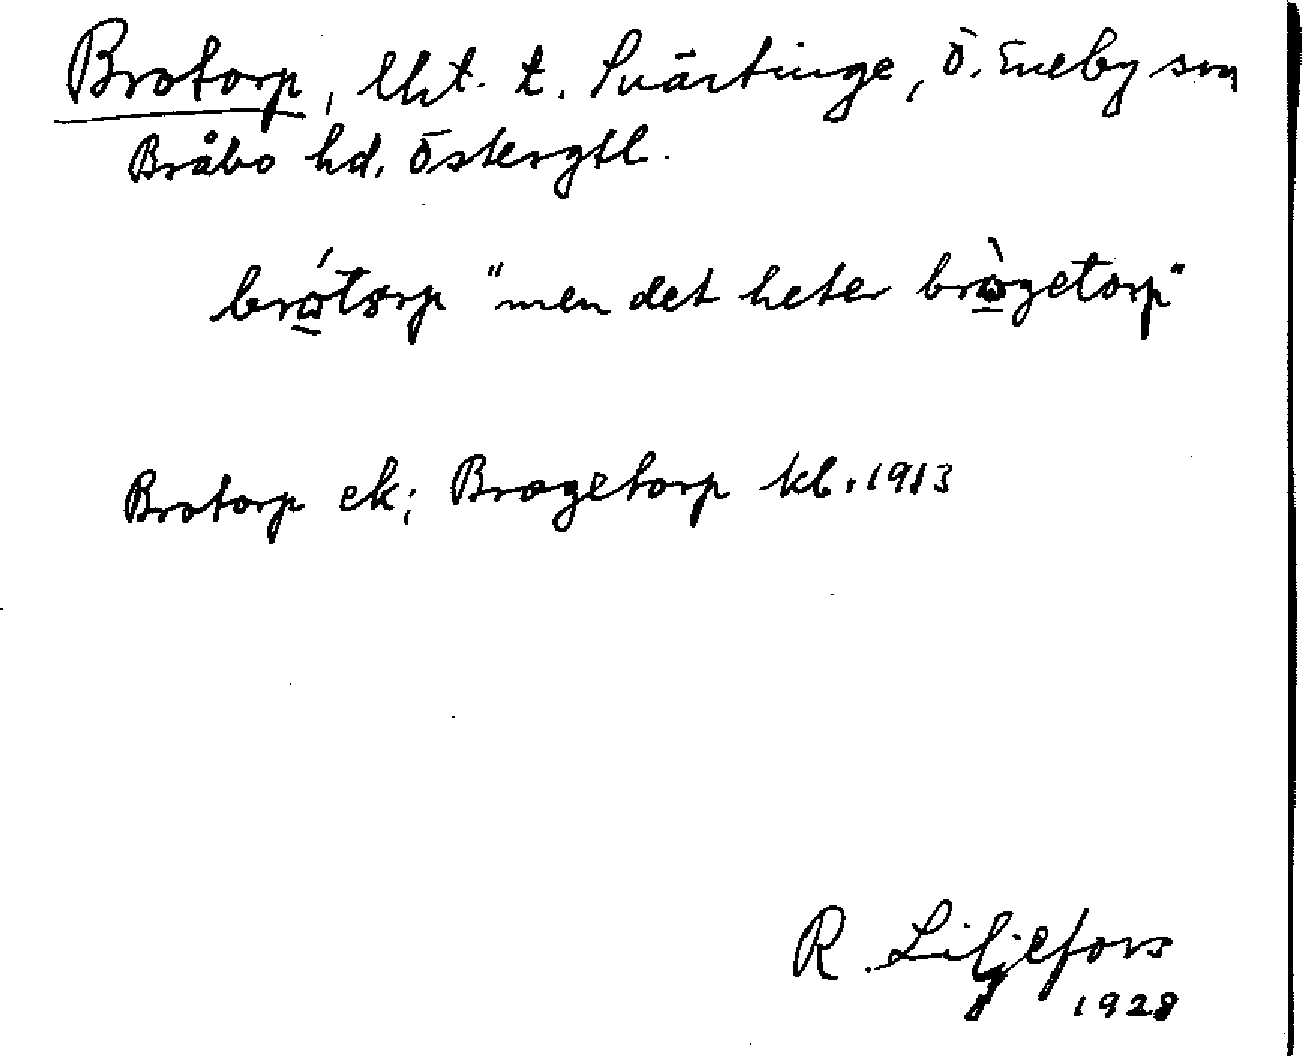 Brotorp, lht. t. Svärtinge, Ö. Eneby sn
Bråbo hd. Östergtl.
brώ̲torp "men det heter brὼ̲getorp"
Brotorp ek; Brogetorp kb. 1913
R. Liljefors
1928